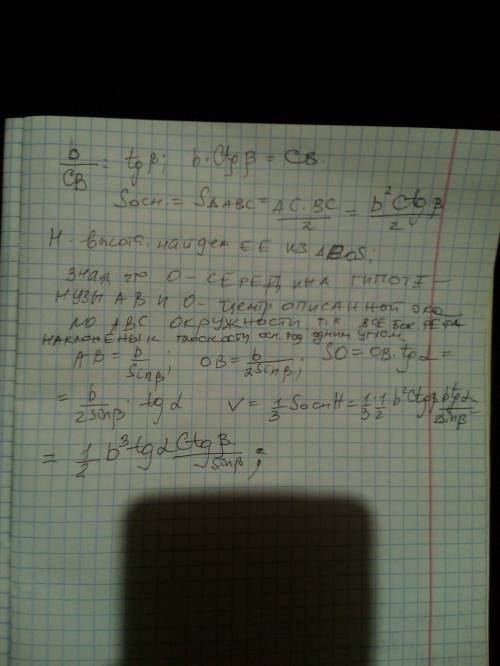 b/CB = tgβ; b·Ctgβ = CB
Sосн = SΔABC = AC·BC/2 = b²Ctgβ/2
H - высота. найдем ЕЕ ИЗ ΔBOS;
ЗНАЯ, что O - СЕРЕДИНА ГИПОТЕ-
НУЗЫ AB И O- ЦЕНТР ОПИСАННОЙ ОКО-
ЛО ABC ОКРУЖНОСТИ Т.К ВСЕ бок. РЕбРА
НАКЛОНЕНЫ К ПЛОСКОСТИ осн. под одним углом
AB = b/Sinβ; OB = b/2Sinβ; SO = OB·tgα =
= b/2Sinβ · tgα V = 1/3 SоснH = 1/3·1/2 b²Ctgβ btgα/2Sinβ
= 1/2 b³tgα Ctgβ/Sinβ;